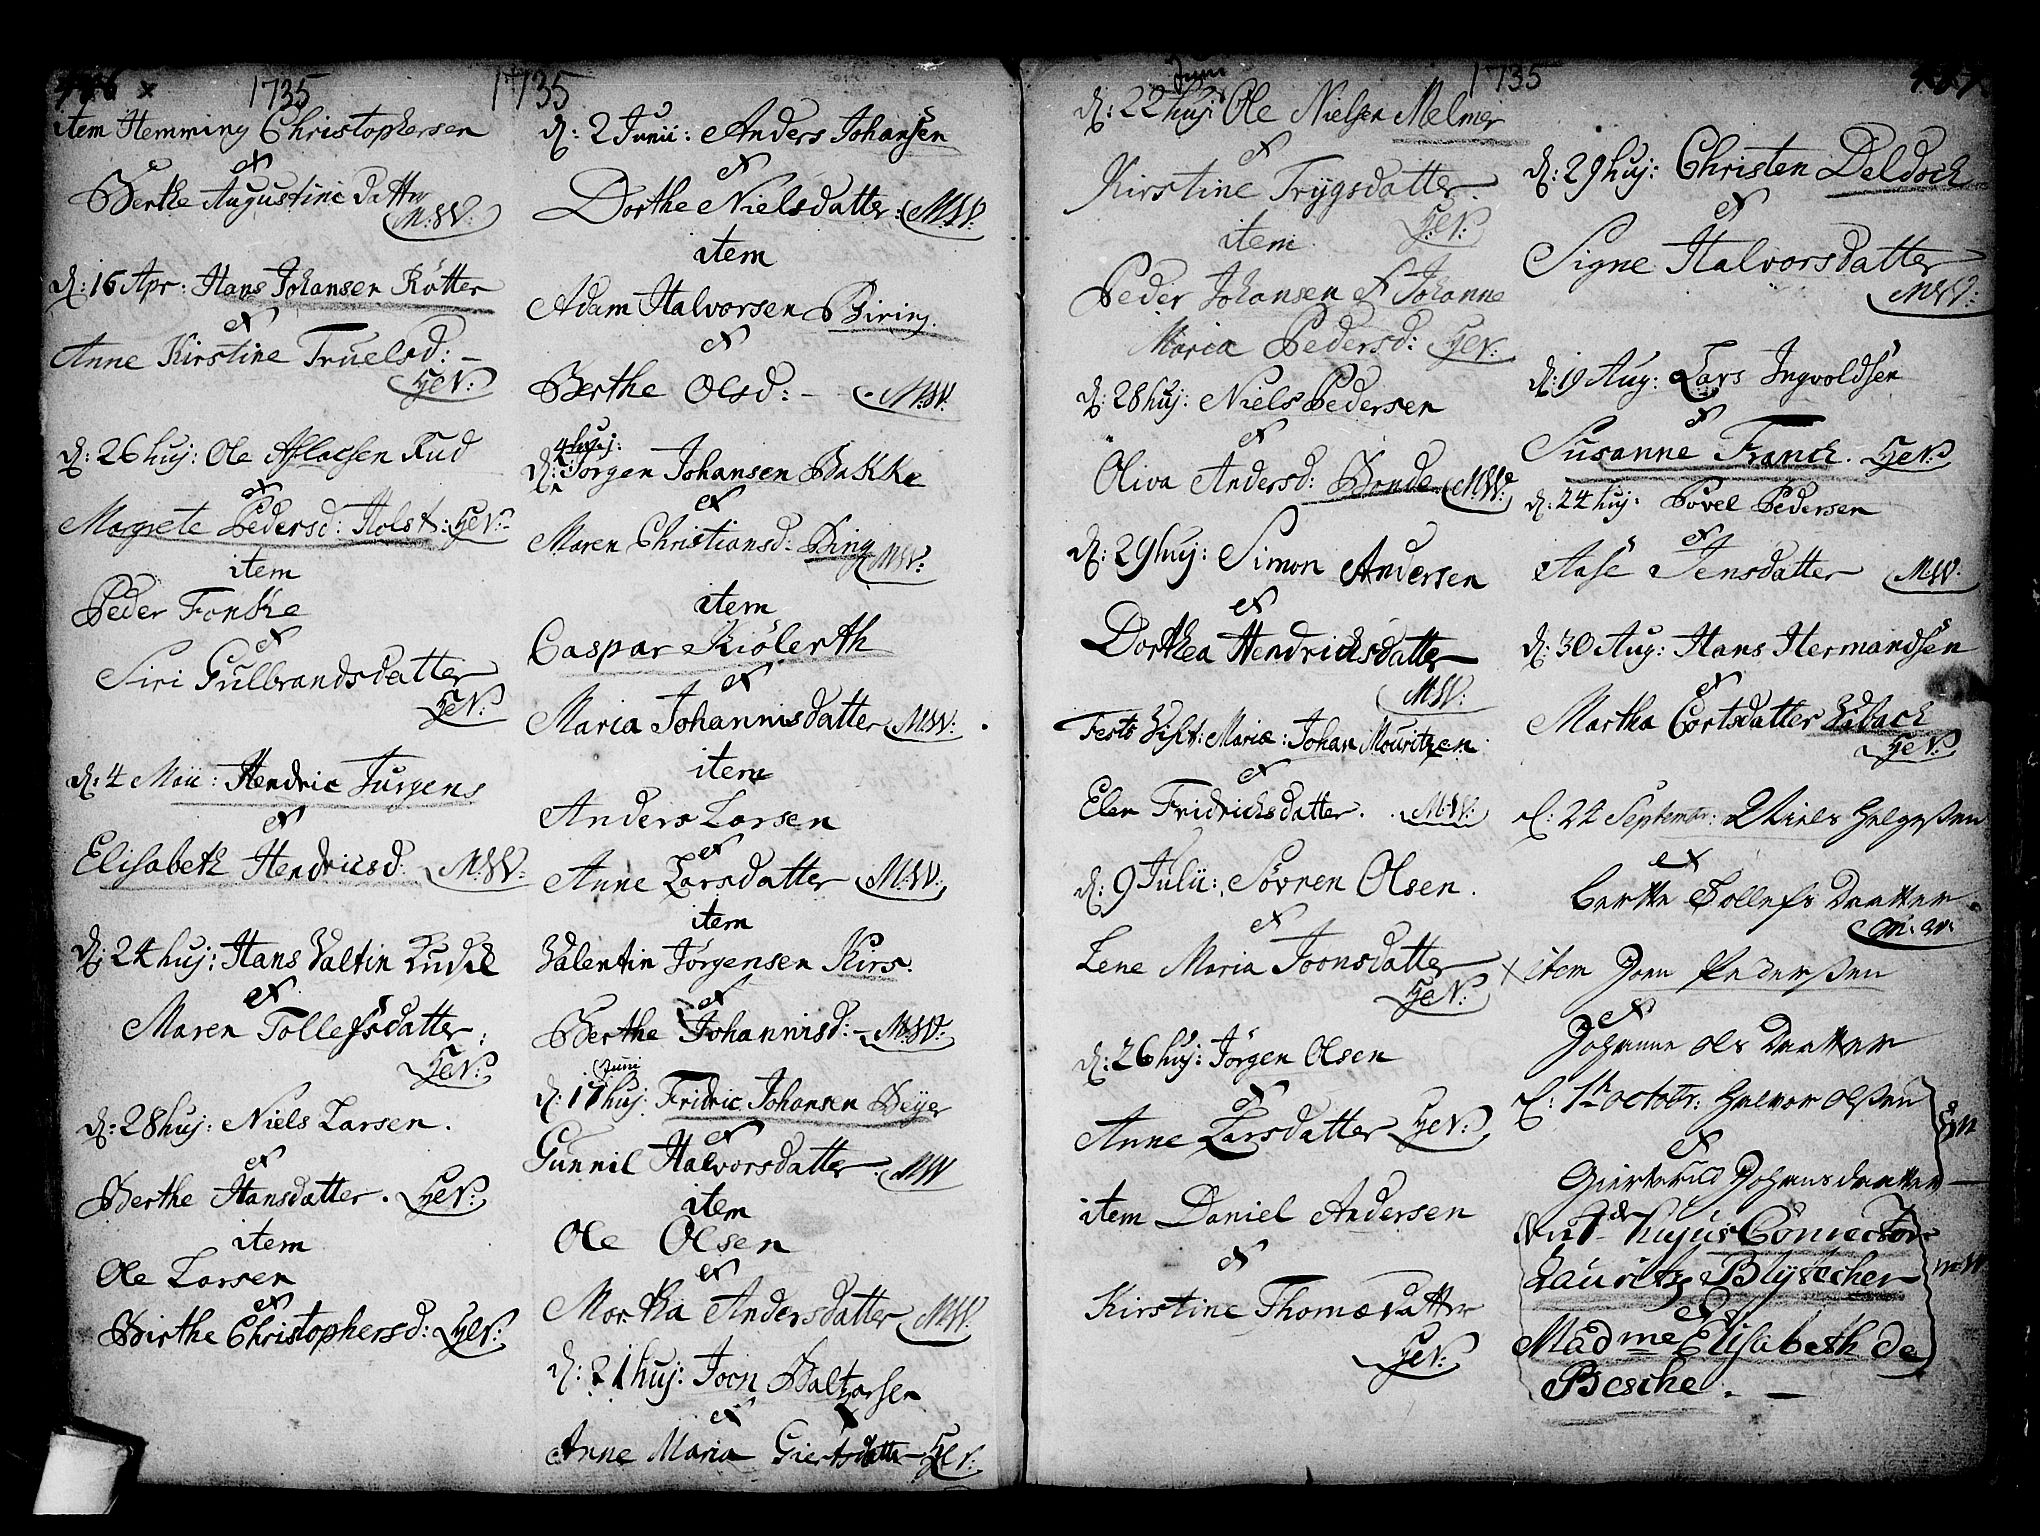 1735
item Hemming Christophersen
et
Berthe Augustine datter
M:W:
d: 16 Apr: Hans Johansen Rötter
et
Anne Kirstine Truelsd: –
H:N:
d: 26 huj: Ole Aslacsen Rud
et
Magrete Pedersd: Holst: H:N:
item
Peder Fonke
et
Siri Gulbrandsdatter
H:N:
d: 4 Maii: Hendric Jurgens
et
Elisabeth Hendricsd: M:W:
d: 24 huj: Hans Valtin
et
Maren Tollefsdatter:
H:N:
d: 28 huj: Niels Larsen.
et
Berthe Hansdatter. H:N:
item
Ole Larsen
et
Birthe Christophersd: H:N:
1735
d: 2 Junii: Anders Johansen
et
Dorthe Nielsdatter: M:W:
item
Adam Halvorsen Biring.
et
Berthe Olsd: – M:W:
4 huj:
d: Jörgen Johansen Bakke
et
Maren Christiansd: Bing M:W:
item
Caspar Kiölerth
et
Maria Johannisdatter M:W:
item
Anders Larsen
et
Anne Larsdatter M:W:
item
Valentin Jörgensen Kirs.
et
Berthe Johannisd: – M:W:
Juni
d: 17 huj: Fridric Johansen Beyer
et
Gunnil Halvorsdatter M W
item
Ole Olsen
et
Martha Andersdatter M:W:
d: 21 huj: Joen Baltzarsen
et
Anne Maria Giertsdatter – H:N:
Junii 1735
d: 22 huj: Ole Nielsen Melmer
et
Kirstine Trygsdatter
H:N:
item
Peder Johansen et Johanne
Maria Pedersd: H:N:
d: 28 huj: Niels Pedersen
et
Oliva Andersd: Bonde M:W:
d: 29 huj: Simon Andersen
et
Dorthea Hendrichsdatter
M:W:
Festo Visit: Mariæ: Johan Mouritzen
et
Elen Fridrichsdatter. M:W:
d: 9 Julii: Sövren Olsen.
et
Lene Maria Joonsdatter
H:N:
d: 26 huj: Jörgen Olsen
et
Anne Larsdatter H:N:
item Daniel Andersen
et
Kirstine Thomædatter
H:N:
d: 29 huj: Christen Deldock
et
Signe Halvorsdatter
M:W:
d: 19 Aug: Lars Ingvoldsen
et
Susanne Franck. H:N:
d: 24 huj: Povel Pedersen
et
Aase Jensdatter M:W:
d: 30 Aug: Hans Hermandsen
et
Martha Cortsdatter
H:N:
d: 22 September: Niels Helgesen
et
berthe Tollefs Daatter.
M:W:
x item Joen Pedersen
et
Johanne Ols Daatter
d: 1te octobr: Halvor Olsen
et
Johans daatter –
1de hujus Conrector
Lauritz Blÿtecher
et
Madme Elisabeth de
Besche. –